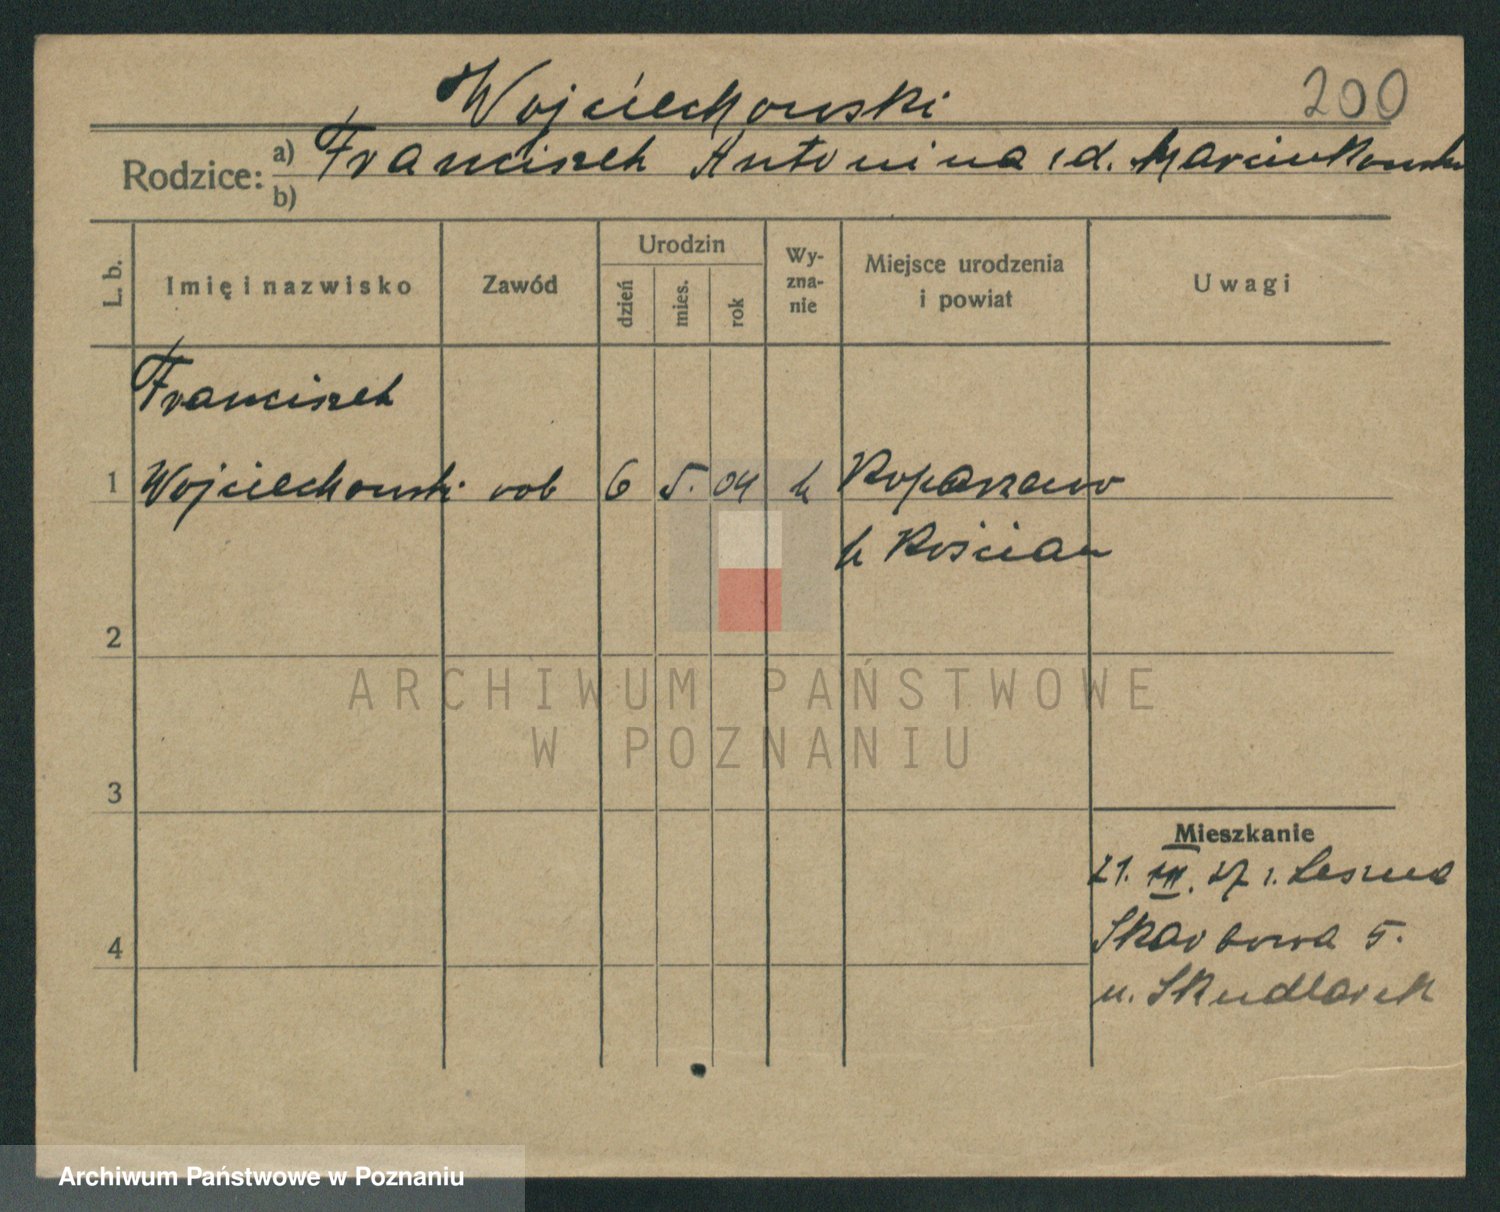 Wojciechowski
200
Rodzice: a) Franciszek Antonina z d. Marcinkowska
b)
L. b.
Imię i nazwisko
Zawód
Urodzin
dzień
mies.
rok
Wy-
zna-
nie
Miejsce urodzenia
i powiat
Uwagi
Franciszek
1 Wojciechowski rob 6 5. 04 k Kopaszewo
k Kościan
2
ARCHIWUM PAŃSTWOWE
W POZNANIU
3
Mieszkanie
21. III. 27 r. Leszno
4 Skarbowa 5.
u. Skudlarek
Archiwum Państwowe w Poznaniu